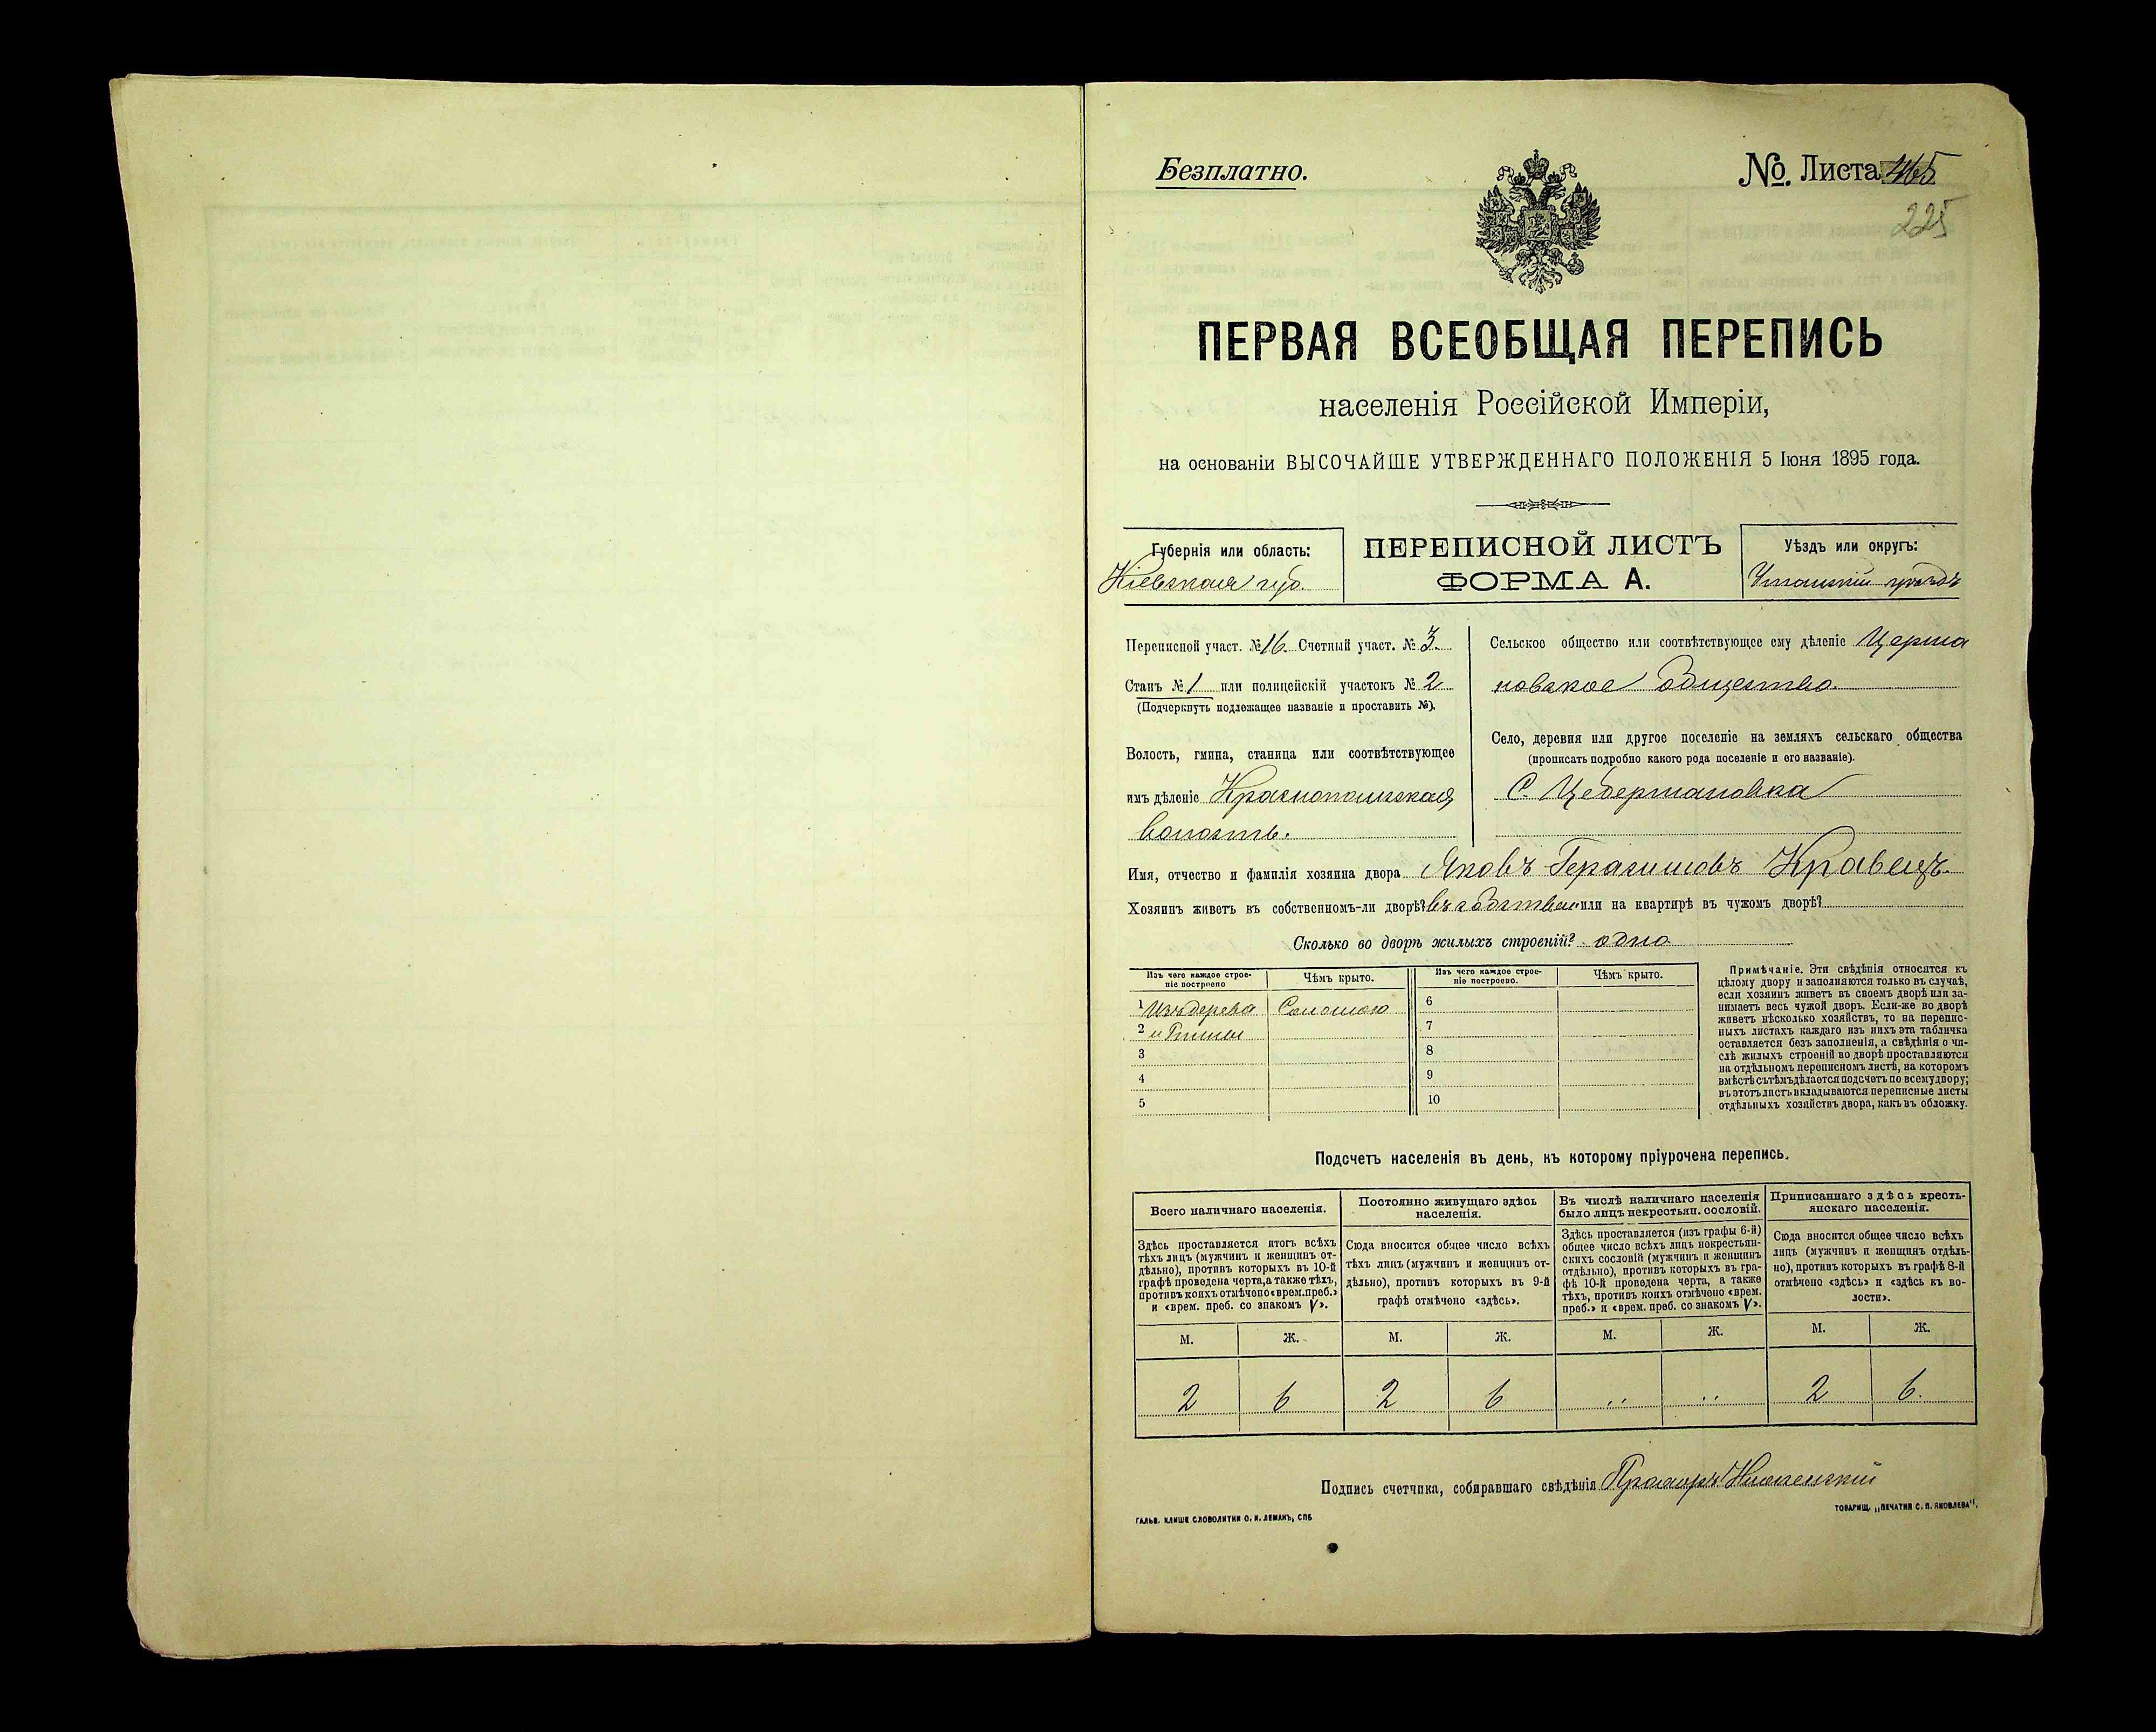 Безплатно.
№. Листа 465
225
ПЕРВАЯ ВСЕОБЩАЯ ПЕРЕПИСЬ
населенія Россійской Имперіи,
на основаніи ВЫСОЧАЙШЕ УТВЕРЖДЕННАГО ПОЛОЖЕНІЯ 5 Іюня 1895 года.
Губернія или область:
Кіевская губ.
ПЕРЕПИСНОЙ ЛИСТЪ
ФОРМА А.
Уѣздъ или округъ:
Уманскій уѣздъ
Переписной участ. № 16. Счетный участ. № 3.
Станъ № 1 или полицейскій участокъ № 2
(Подчеркнуть подлежащее названіе и проставить №).
Волость, гмина, станица или соотвѣтствующее
имъ дѣленіе Краснопольская
волость.
Сельское общество или соотвѣтствующее ему дѣленіе Церма
новское общество.
Село, деревня или другое поселеніе на земляхъ сельскаго общества
(прописать подробно какого рода поселеніе и его названіе).
С. Цебермановка
Имя, отчество и фамилія хозяина двора Яковъ Герасимовъ Кравецъ.
Хозяинъ живетъ въ собственномъ-ли дворѣ? въ собствен. или на квартирѣ въ чужомъ дворѣ?
Сколько во дворѣ жилыхъ строеній? одно
Изъ чего каждое строе-
ніе построено
Чѣмъ крыто.
Изъ чего каждое строе-
ніе построено.
Чѣмъ крыто.
1 Изъ дерева Соломою
2 и глины
3
4
5
6
7
8
9
10
Примѣчаніе. Эти свѣдѣнія относятся къ
цѣлому двору и заполняются только въ случаѣ,
если хозяинъ живетъ въ своемъ дворѣ или за-
нимаетъ весь чужой дворъ. Если-же во дворѣ
живетъ нѣсколько хозяйствъ, то на перепис-
ныхъ листахъ каждаго изъ нихъ эта табличка
оставляется безъ заполненія, а свѣдѣнія о чи-
слѣ жилыхъ строеній во дворѣ проставляются
на отдѣльномъ переписномъ листѣ, на которомъ
вмѣстѣ съ тѣмъ дѣлается подсчетъ по всему двору;
въ этотъ листъ вкладываются переписные листы
отдѣльныхъ хозяйствъ двора, какъ въ обложку.
Подсчетъ населенія въ день, къ которому пріурочена перепись.
Всего наличнаго населенія.
Здѣсь проставляется итогъ всѣхъ
тѣхъ лицъ (мужчинъ и женщинъ от-
дѣльно), противъ которыхъ въ 10-й
графѣ проведена черта, а также тѣхъ,
противъ коихъ отмѣчено «врем. преб.»
и «врем. преб. со знакомъ V».
Постоянно живущаго здѣсь
населенія.
Сюда вносится общее число всѣхъ
тѣхъ лицъ (мужчинъ и женщинъ от-
дѣльно), противъ которыхъ въ 9-й
графѣ отмѣчено «здѣсь».
Въ числѣ наличнаго населенія
было лицъ некрестьян. сословій.
Здѣсь проставляется (изъ графы 6-й)
общее число всѣхъ лицъ некрестьян-
скихъ сословій (мужчинъ и женщинъ
отдѣльно), противъ которыхъ въ гра-
фѣ 10-й проведена черта, а также
тѣхъ, противъ коихъ отмѣчено «врем.
преб.» и «врем. преб. со знакомъ V».
Приписаннаго здѣсь кресть-
янскаго населенія.
Сюда вносится общее число всѣхъ
лицъ (мужчинъ и женщинъ отдѣль-
но), противъ которыхъ въ графѣ 8-й
отмѣчено «здѣсь» и «здѣсь къ во-
лости».
М. Ж. М. Ж. М. Ж. М. Ж.
2 6 2 6 „ „ 2 6.
Подпись счетчика, собиравшаго свѣдѣнія
ГАЛЬВ. КЛИШЕ СЛОВОЛИТНИ О. И. ЛЕМАНЪ, СПБ
ТОВАРИЩ. „ПЕЧАТНЯ С. П. ЯКОВЛЕВА".